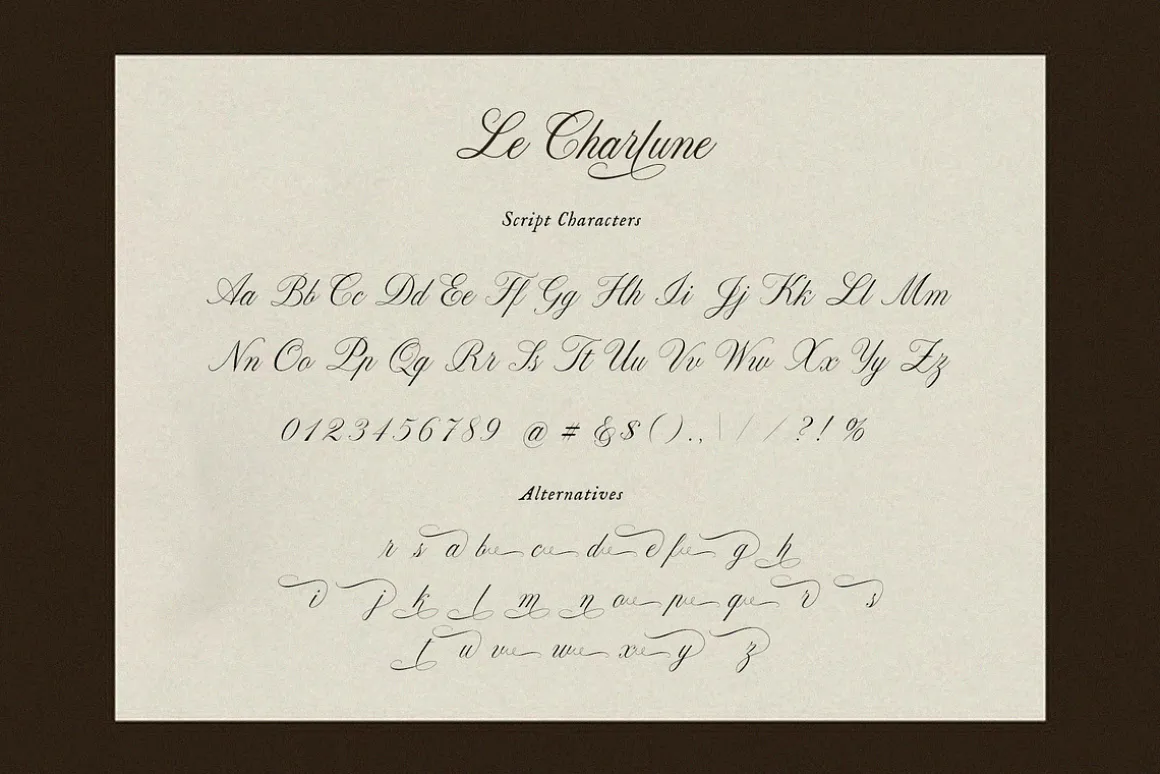 Le Charlune
Script Characters
Aa Bb Cc Dd Ee Ff Gg Hh Ii Jj Kk Ll Mm
Nn Oo Pp Qq Rr Ss Tt Uu Vv Ww Xx Yy Zz
0123456789 @ # & $ ( ) . , \ / / ? ! %
Alternatives
r s a b c d e f g h
i j k l m n o p q r s
t u v w x y z